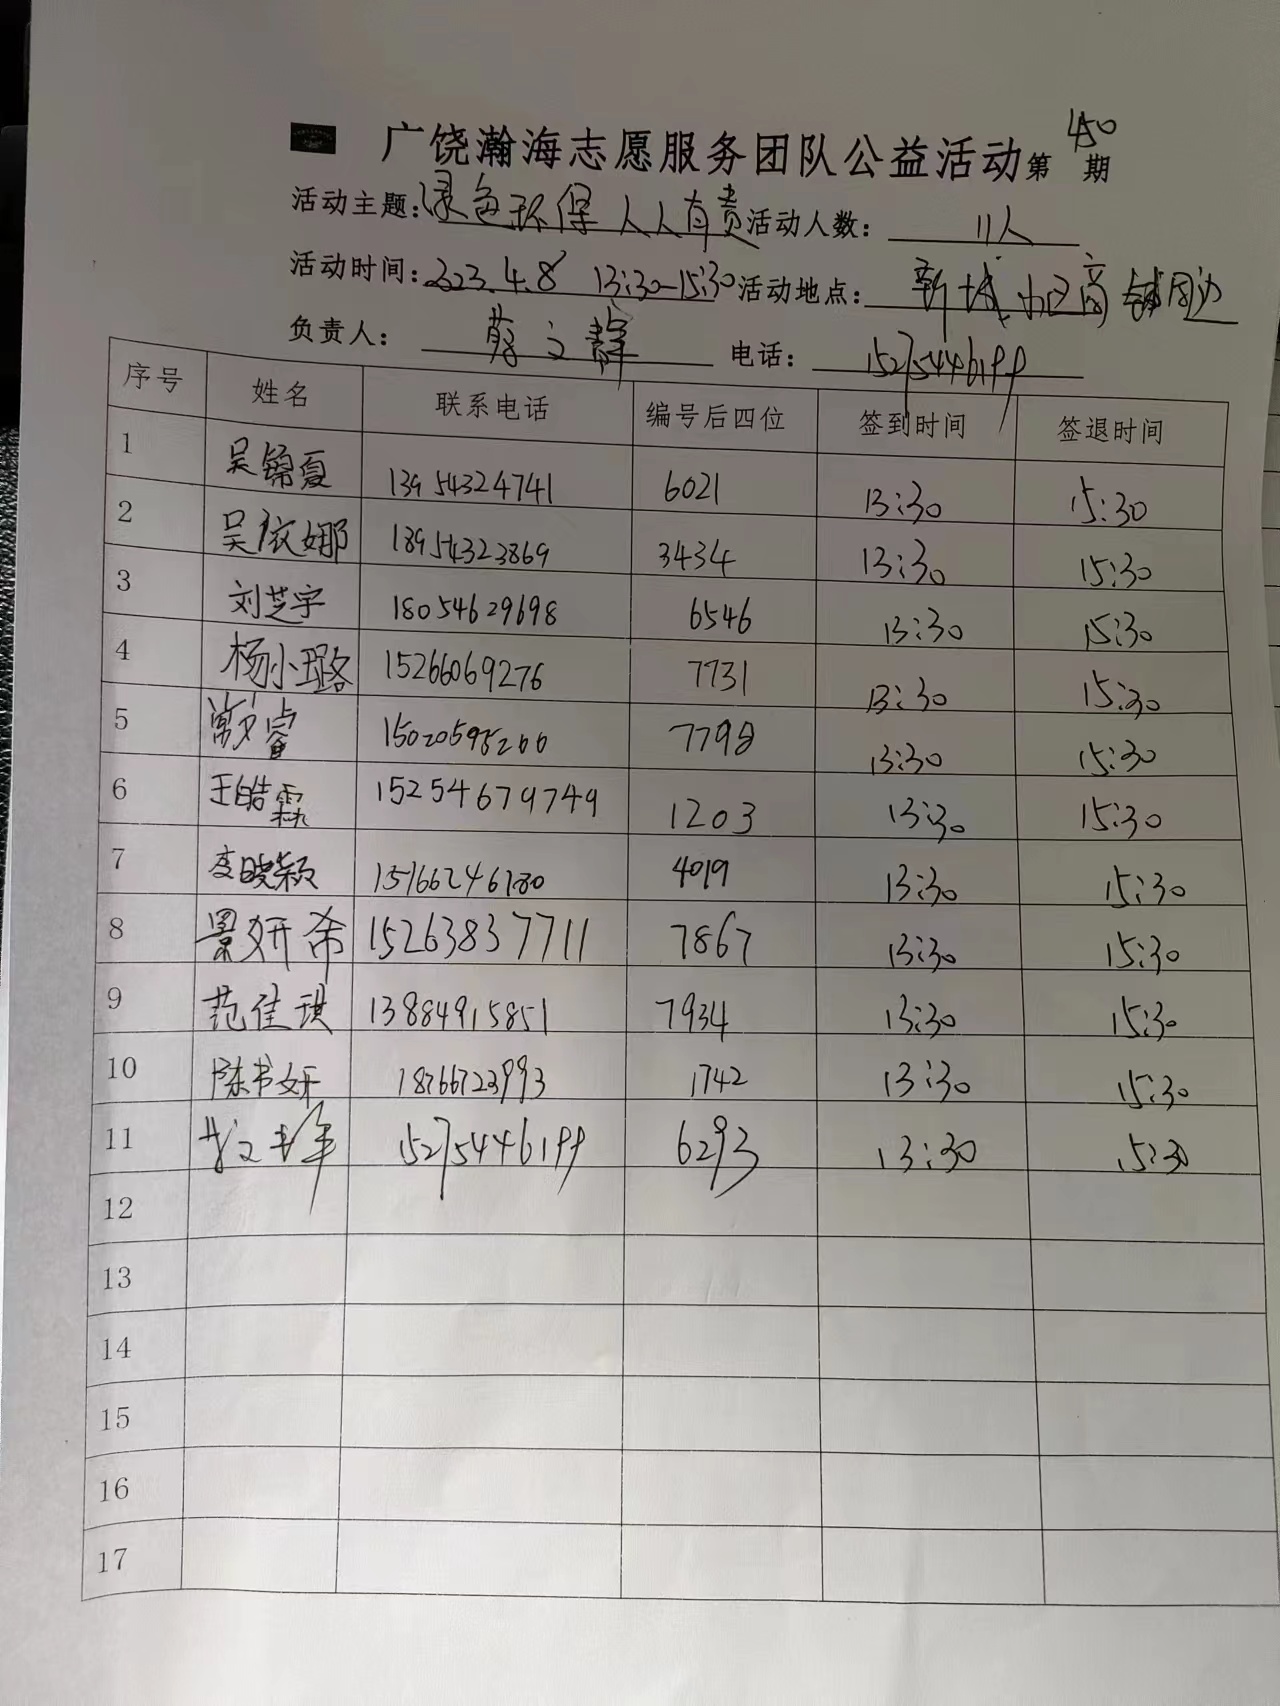 广饶瀚海志愿服务团队公益活动第450期
活动主题:绿色环保 人人有责 活动人数: 11人
活动时间:2023.4.8 13:30-15:30 活动地点: 新城小区商铺周边
负责人: 蒋文静 电话: 15275446199
序号 姓名 联系电话 编号后四位 签到时间 签退时间
1 吴锦夏 13954324741 6021 13:30 15:30
2 吴依娜 18954323869 3434 13:30 15:30
3 刘芝宇 18054629698 6546 13:30 15:30
4 杨小璐 15266069276 7731 13:30 15:30
5 睿 7798 13:30 15:30
6 王皓霖 15254679749 1203 13:30 15:30
7 李晓颖 4019 13:30 15:30
8 景妍希 15263837711 7867 13:30 15:30
9 范佳琪 13884915851 7934 13:30 15:30
10 陈书妍 18766723993 1742 13:30 15:30
11 蒋文静 15275446199 6293 13:30 15:30
12
13
14
15
16
17